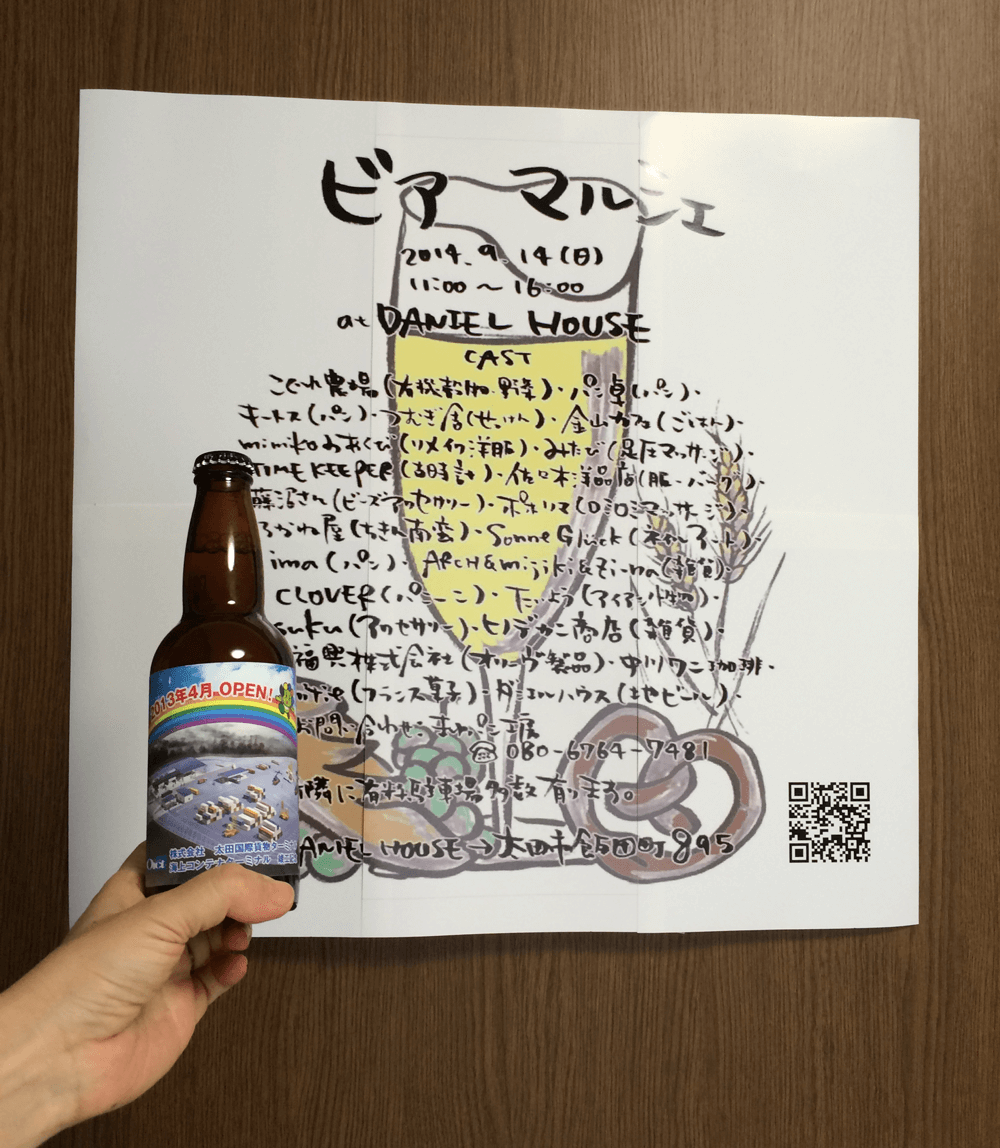 ビア マルシェ
2014.9.14(日)
11:00～16:00
at DANIEL HOUSE
CAST
こぐれ農場(有機穀物・野菜)・パン卓(パン)・
キートス(パン)・つむぎ舎(せっけん)・金山カフェ(ごはん)・
mimikoおあくび(リメイク洋服)・みたび(足圧マッサージ)・
TIME KEEPER(古時計)・佐々木洋品店(服・バッグ)・
蘇沼さん(ビーズアクセサリー)・ポネリマ(ロミロミマッサージ)・
かね屋(ちきん南蛮)・Sonne Glück(ネイルアート)・
ima(パン)・ARCH&mijiki&Ziima(雑貨)・
CLOVER(パニーニ)・たいよう(アイアン小物)・
suku(アクセサリー)・ヒノデカニ商店(雑貨)・
福興株式会社(オリーヴ製品)・中川ワニ珈琲・
(フランス菓子)・ダニエルハウス(地ビール)
お問い合わせ:まやパン工房
☎ 080-6764-7481
隣に有料駐車場多数有ります。
ANIEL HOUSE→太田市飯田町895
2013年4月 OPEN!
Oict
株式会社 太田国際貨物ターミナ
海上コンテナターミナル 竣工